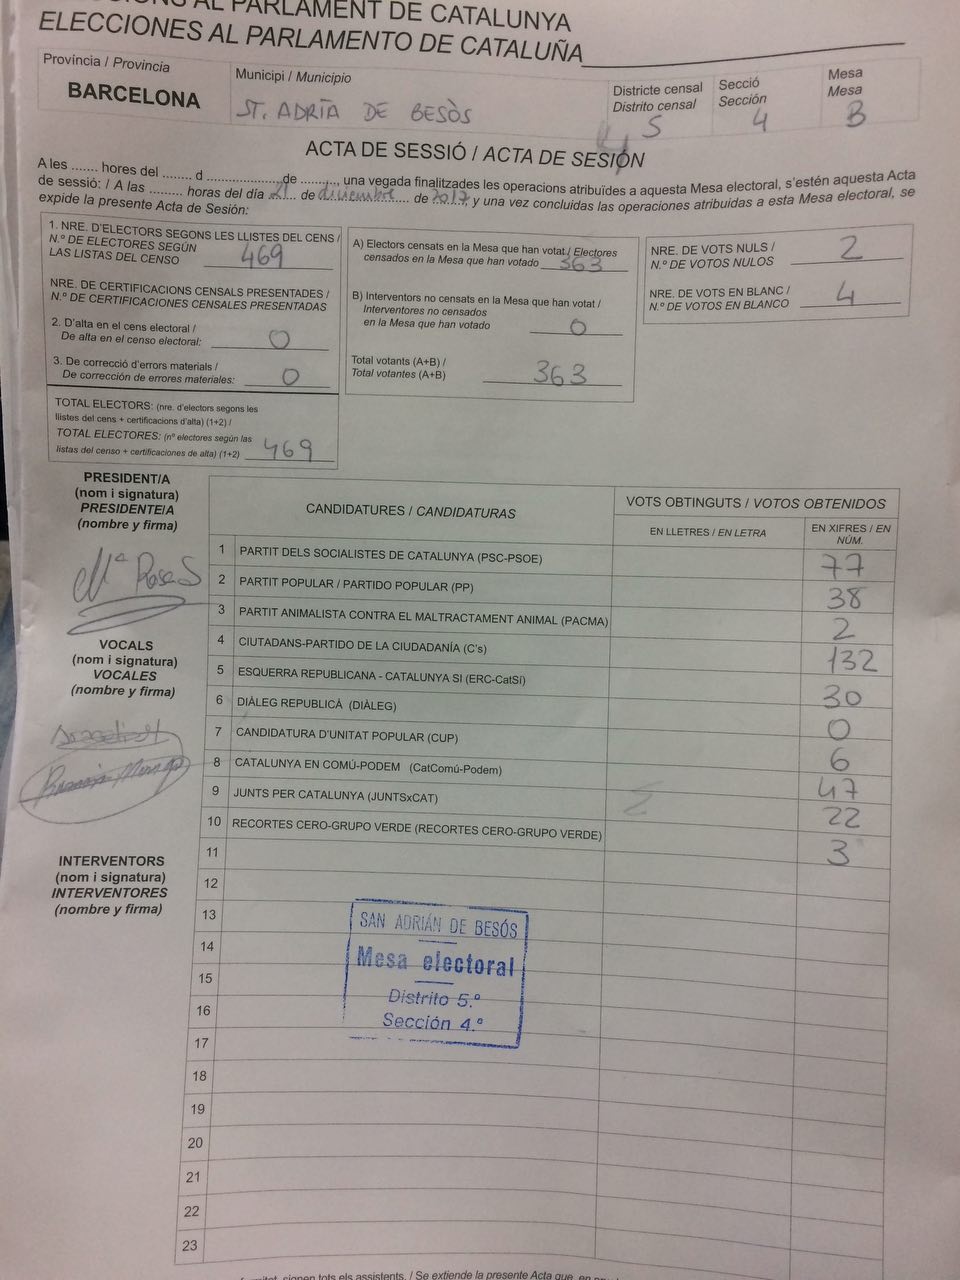 ELECCIONS AL PARLAMENT DE CATALUNYA
ELECCIONES AL PARLAMENTO DE CATALUÑA
Província / Provincia
BARCELONA
Municipi / Municipio
ST. ADRIÀ DE BESÒS
Districte censal
Distrito censal
5
Secció
Sección
4
Mesa
Mesa
B
ACTA DE SESSIÓ / ACTA DE SESIÓN
A les ....... hores del ........ d ....................de .........., una vegada finalitzades les operacions atribuïdes a aquesta Mesa electoral, s'estén aquesta Acta
de sessió: / A las ......... horas del día 21 de diciembre de 2017, y una vez concluidas las operaciones atribuidas a esta Mesa electoral, se
expide la presente Acta de Sesión:
1. NRE. D'ELECTORS SEGONS LES LLISTES DEL CENS /
N.º DE ELECTORES SEGÚN
LAS LISTAS DEL CENSO 469
NRE. DE CERTIFICACIONS CENSALS PRESENTADES /
N.º DE CERTIFICACIONES CENSALES PRESENTADAS
2. D'alta en el cens electoral /
De alta en el censo electoral: 0
3. De correcció d'errors materials /
De corrección de errores materiales: 0
TOTAL ELECTORS: (nre. d'electors segons les
llistes del cens + certificacions d'alta) (1+2) /
TOTAL ELECTORES: (nº electores según las
listas del censo + certificaciones de alta) (1+2) 469
A) Electors censats en la Mesa que han votat / Electores
censados en la Mesa que han votado 363
B) Interventors no censats en la Mesa que han votat /
Interventores no censados
en la Mesa que han votado 0
Total votants (A+B) /
Total votantes (A+B) 363
NRE. DE VOTS NULS /
N.º DE VOTOS NULOS 2
NRE. DE VOTS EN BLANC /
N.º DE VOTOS EN BLANCO 4
PRESIDENT/A
(nom i signatura)
PRESIDENTE/A
(nombre y firma)
Mª Rosa S
VOCALS
(nom i signatura)
VOCALES
(nombre y firma)
INTERVENTORS
(nom i signatura)
INTERVENTORES
(nombre y firma)
CANDIDATURES / CANDIDATURAS
VOTS OBTINGUTS / VOTOS OBTENIDOS
EN LLETRES / EN LETRA
EN XIFRES / EN
NÚM.
1 PARTIT DELS SOCIALISTES DE CATALUNYA (PSC-PSOE) 77
2 PARTIT POPULAR / PARTIDO POPULAR (PP) 38
3 PARTIT ANIMALISTA CONTRA EL MALTRACTAMENT ANIMAL (PACMA) 2
4 CIUTADANS-PARTIDO DE LA CIUDADANÍA (C's) 132
5 ESQUERRA REPUBLICANA - CATALUNYA SI (ERC-CatSí) 30
6 DIÀLEG REPUBLICÀ (DIÀLEG) 0
7 CANDIDATURA D'UNITAT POPULAR (CUP) 6
8 CATALUNYA EN COMÚ-PODEM (CatComú-Podem) 47
9 JUNTS PER CATALUNYA (JUNTSxCAT) 22
10 RECORTES CERO-GRUPO VERDE (RECORTES CERO-GRUPO VERDE) 3
11
12
13
14
15
16
17
18
19
20
21
22
23
SAN ADRIÁN DE BESÓS
Mesa electoral
Distrito 5.º
Sección 4.ª
signen tots els assistents. / Se extiende la presente Acta que, en